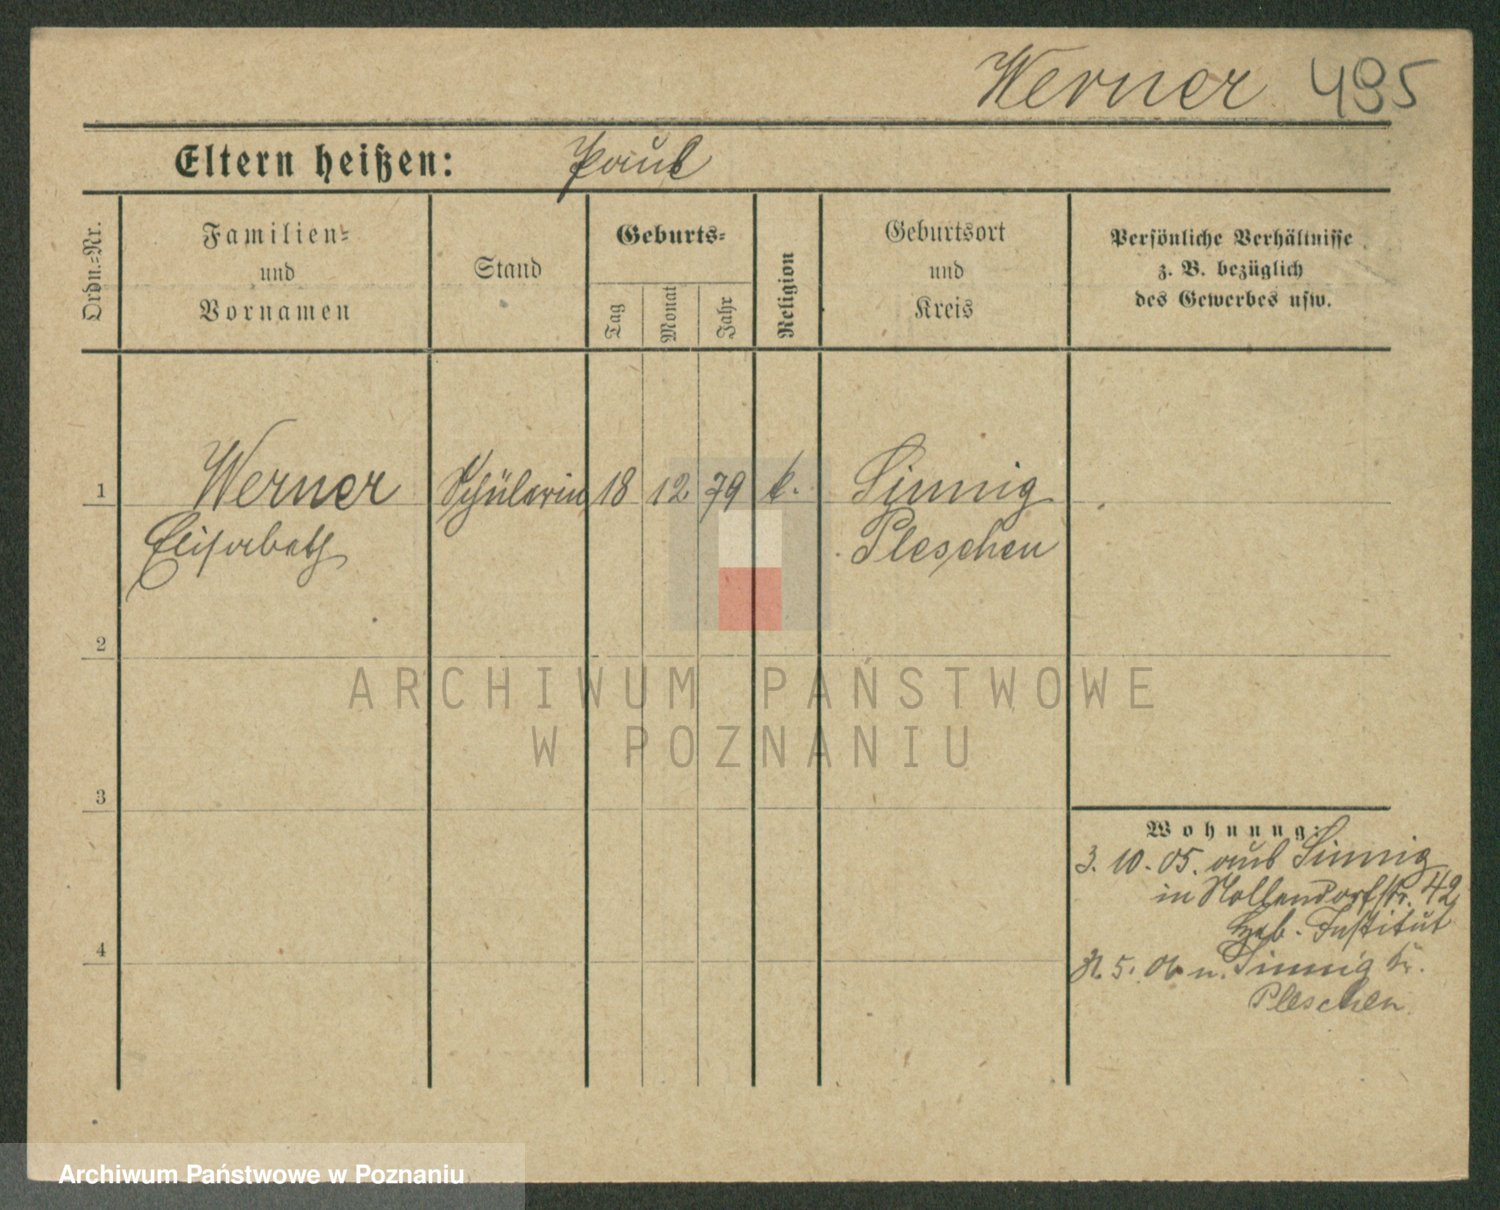 Werner 495
Eltern heißen: Paul
Ordn.-Nr.
Familien- und Vornamen
Stand
Geburts-
Tag
Monat
Jahr
Religion
Geburtsort und Kreis
Persönliche Verhältnisse
z. B. bezüglich
des Gewerbes usw.
1 Werner Schülerin 18 12 79 k. Sinnig
Elisabeth Pleschen
2
ARCHIWUM PAŃSTWOWE
W POZNANIU
3
Wohnung:
3. 10. 05. aus Sinnig
in Nollendorfstr. 42
Heb. Institut
4
5. 06 n. Sinnig Kr.
Pleschen
Archiwum Państwowe w Poznaniu